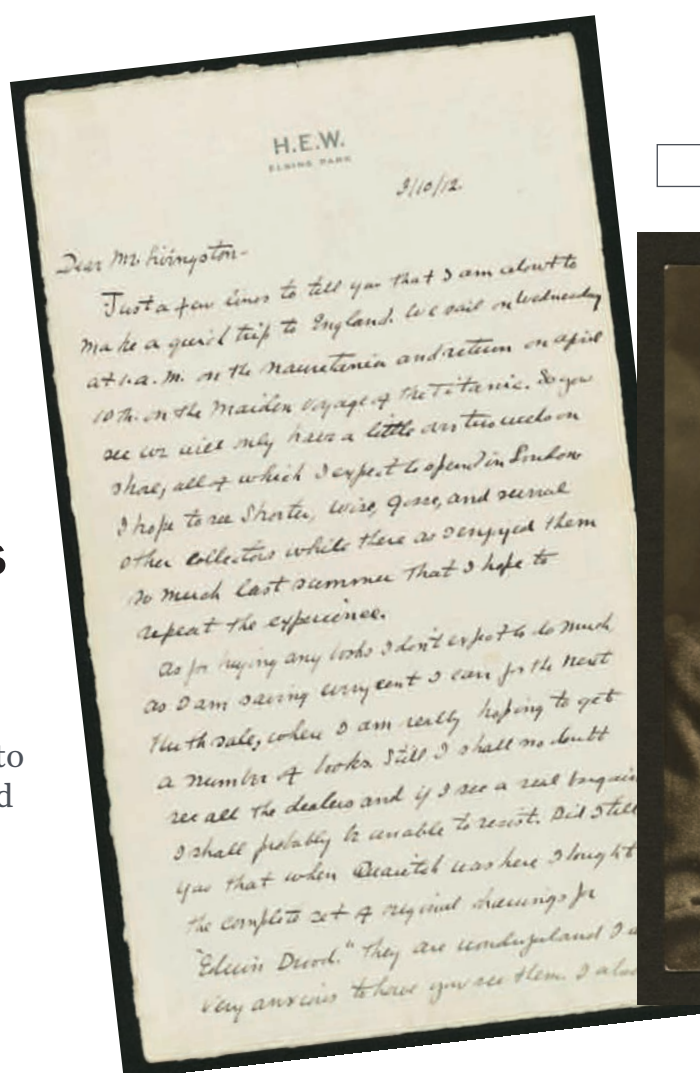 H.E.W.
ELKINS PARK
3/10/12.
Dear Mr. Livingston-
Just a few lines to tell you that I am about to
make a quick trip to England. We sail on Wednesday
at 1. a. M. on the Mauretania and return on april
10th. on the Maiden Voyage of the Titanic. So you
see we will only have a little over two weeks on
shore, all of which I expect to spend in London
I hope to see Shorter, Wise, Gosse, and several
other collectors while there as I enjoyed them
so much last summer that I hope to
repeat the experience.
As for buying any books I don't expect to do much
as I am saving every cent I can for the next
Huth sale, where I am really hoping to get
a number of books. Still I shall no doubt
see all the dealers and if I see a real bargain
I shall probably be unable to resist. Did I tell
you that when Quaritch was here I bought
the complete set of original drawings for
"Edwin Drood." They are wonderful and I a
very anxious to have you see them. I also
s
to
d